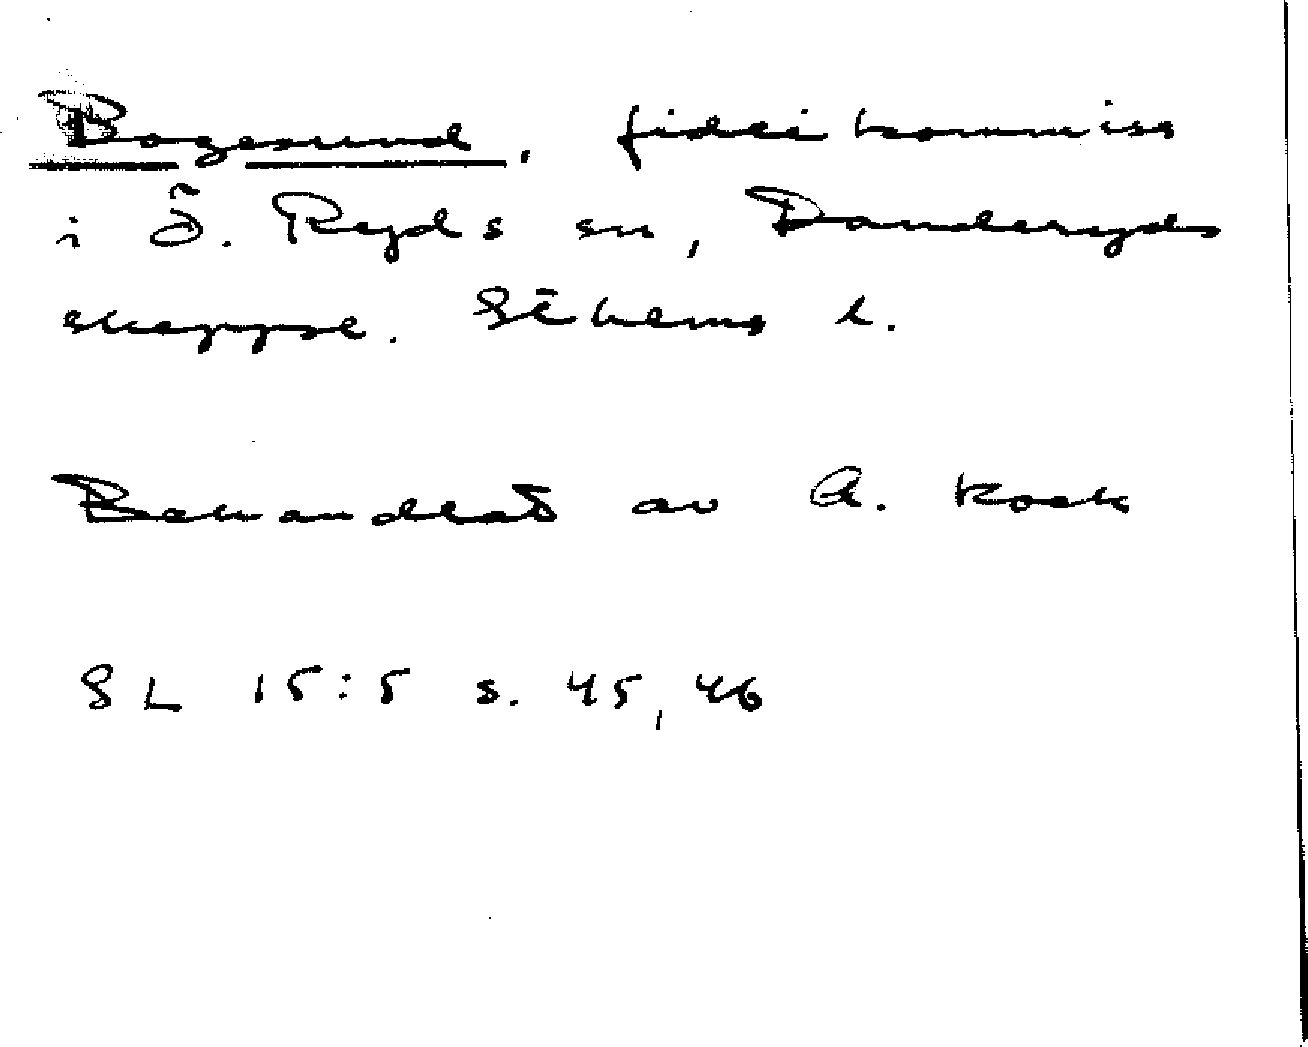 Bogesund, fideikommiss
i Ö. Ryds sn, Danderyds
skeppsl. Sthlms l.
Behandlat av A. Kock
SL 15:5 s. 45, 46